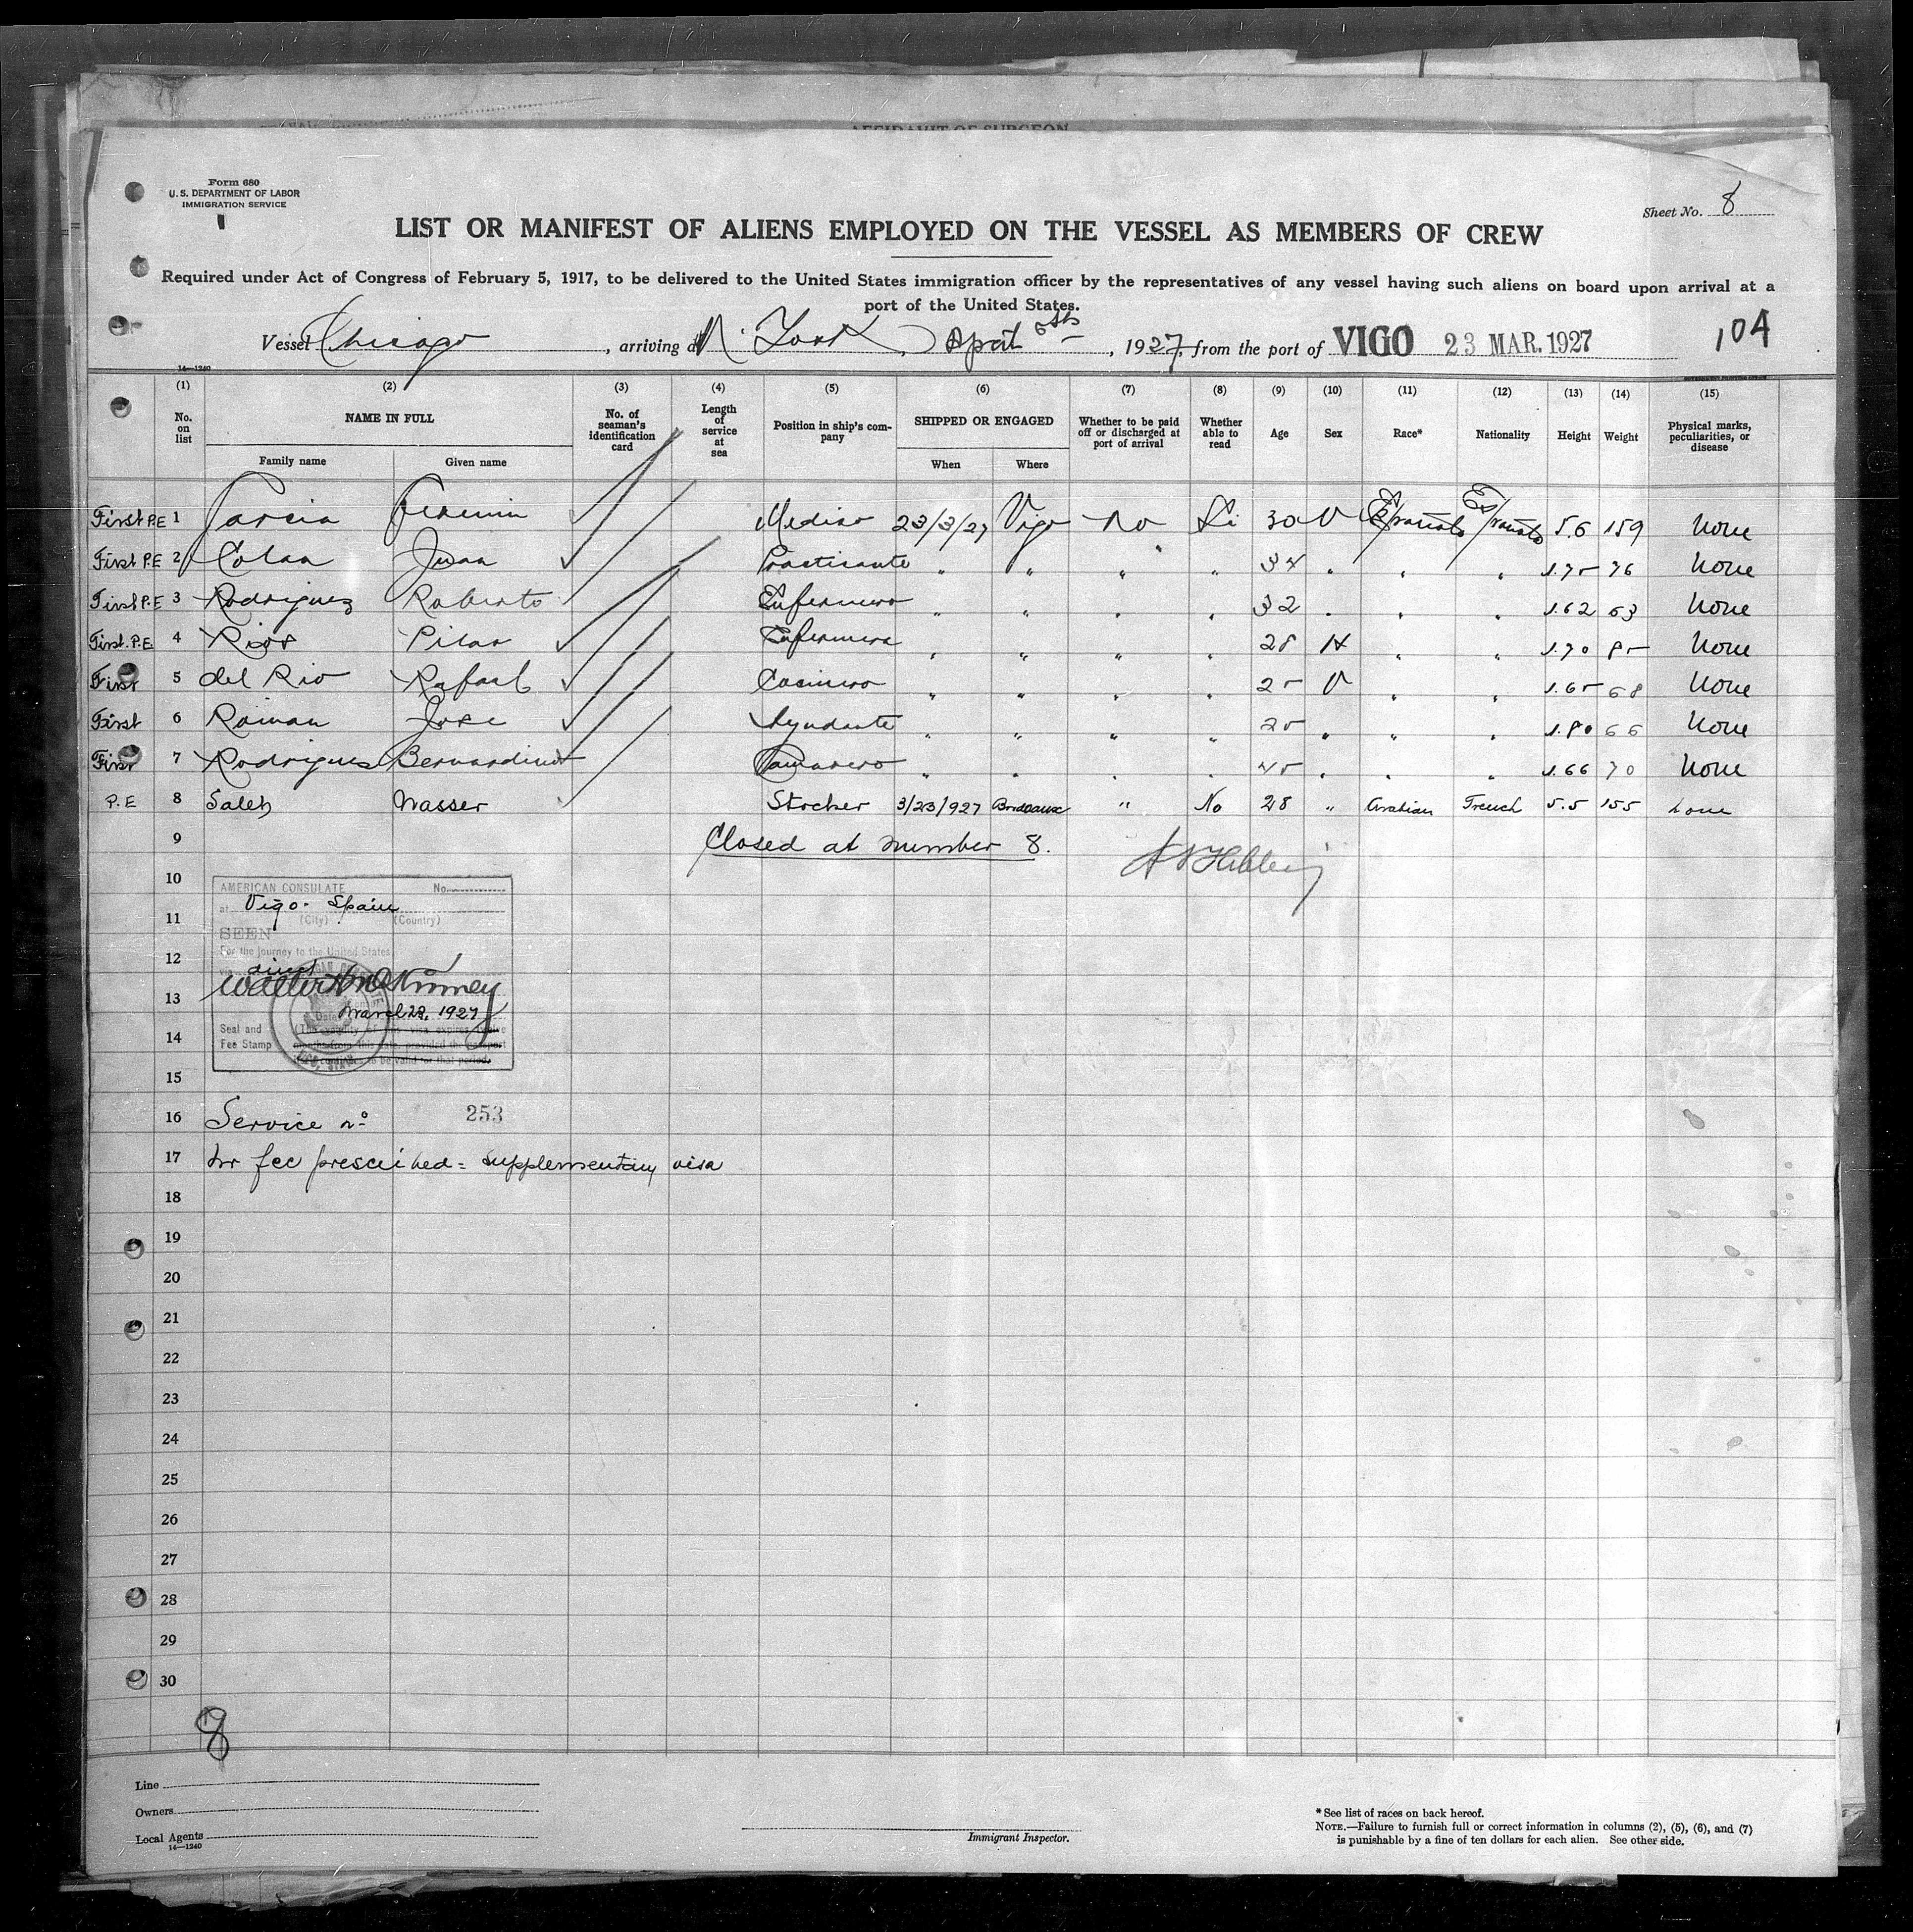 AFFIDAVIT OF SURGEON
Form 680
U. S. DEPARTMENT OF LABOR
IMMIGRATION SERVICE
Sheet No. 8
LIST OR MANIFEST OF ALIENS EMPLOYED ON THE VESSEL AS MEMBERS OF CREW
Required under Act of Congress of February 5, 1917, to be delivered to the United States immigration officer by the representatives of any vessel having such aliens on board upon arrival at a
port of the United States.
Vessel Chicago, arriving at N. York, April 5th, 1927, from the port of VIGO 23 MAR. 1927
104
14—1240
(1) (2) (3) (4) (5) (6) (7) (8) (9) (10) (11) (12) (13) (14) (15)
No. on list NAME IN FULL No. of seaman's identification card Length of service at sea Position in ship's company SHIPPED OR ENGAGED Whether to be paid off or discharged at port of arrival Whether able to read Age Sex Race* Nationality Height Weight Physical marks, peculiarities, or disease
Family name Given name When Where
First P.E 1 Garcia Fermin Medico 23/3/27 Vigo No Si 30 V Española Española 5.6 159 None
First P.E 2 Colan Juan Practicante " " " " 34 " " " 1.75 76 None
First P.E 3 Rodriguez Roberto Enfermero " " " " 32 " " " 1.62 63 None
First. P.E. 4 Rios Pilar Enfermera " " " " 28 H " " 1.70 85 None
First 5 del Rio Rafael Cocinero " " " " 25 V " " 1.65 68 None
First 6 Roman Jose Ayudante " " " " 25 " " " 1.80 66 None
First 7 Rodrigues Bernardino Camarero " " " " 45 " " " 1.66 70 None
P.E 8 Saleh Nasser Stocker 3/23/927 Bordeaux " No 28 " Arabian French 5.5 155 none
9 Closed at number 8.
10
AMERICAN CONSULATE No.
at Vigo. Spain
(City) (Country)
11
SEEN
For the journey to the United States
12
via direct
Walter H McKinney
13
Date March 23, 1927
Seal and (The validity of this visa expires twelve
14
Fee Stamp months from this date, provided the passport
continues to be valid for that period.
15
16 Service nº 253
17 No fee prescribed = supplementary visa
18
19
20
21
22
23
24
25
26
27
28
29
30
8
Line
Owners
Local Agents
14—1240
Immigrant Inspector.
* See list of races on back hereof.
NOTE.—Failure to furnish full or correct information in columns (2), (5), (6), and (7)
is punishable by a fine of ten dollars for each alien. See other side.